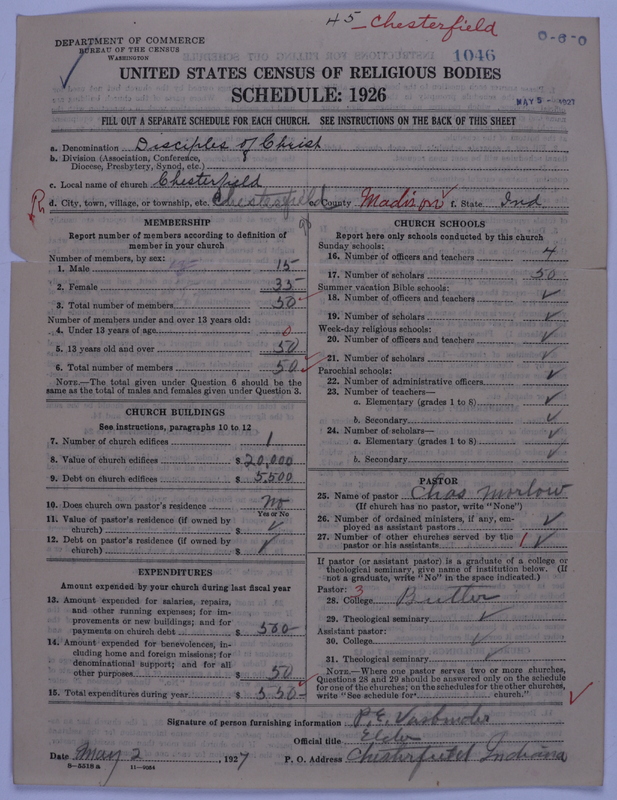 45 - Chesterfield
0-6-0
DEPARTMENT OF COMMERCE
BUREAU OF THE CENSUS
WASHINGTON
1046
UNITED STATES CENSUS OF RELIGIOUS BODIES
SCHEDULE: 1926
MAY 5 - 1927
FILL OUT A SEPARATE SCHEDULE FOR EACH CHURCH. SEE INSTRUCTIONS ON THE BACK OF THIS SHEET
a. Denomination Disciples of Christ
b. Division (Association, Conference,
Diocese, Presbytery, Synod, etc.)
c. Local name of church Chesterfield
d. City, town, village, or township, etc. Chesterfield e. County Madison f. State Ind
MEMBERSHIP
Report number of members according to definition of
member in your church
Number of members, by sex:
1. Male 15
2. Female 35
3. Total number of members 50
Number of members under and over 13 years old:
4. Under 13 years of age 0
5. 13 years old and over 50
6. Total number of members 50
NOTE.—The total given under Question 6 should be
same as the total of males and females given under Question 3.
CHURCH BUILDINGS
See instructions, paragraphs 10 to 12
7. Number of church edifices 1
8. Value of church edifices $ 20,000
9. Debt on church edifices $ 5,500
10. Does church own pastor's residence No
Yes or No
11. Value of pastor's residence (if owned by
church) $ ✓
12. Debt on pastor's residence (if owned by
church) $ ✓
EXPENDITURES
Amount expended by your church during last fiscal year
13. Amount expended for salaries, repairs,
and other running expenses; for im-
provements or new buildings; and for
payments on church debt $ 500
14. Amount expended for benevolences, in-
cluding home and foreign missions; for
denominational support; and for all
other purposes $ 50
15. Total expenditures during year $ 550
CHURCH SCHOOLS
Report here only schools conducted by this church
Sunday schools:
16. Number of officers and teachers 4
17. Number of scholars 50
Summer vacation Bible schools:
18. Number of officers and teachers ✓
19. Number of scholars ✓
Week-day religious schools:
20. Number of officers and teachers ✓
21. Number of scholars ✓
Parochial schools:
22. Number of administrative officers ✓
23. Number of teachers—
a. Elementary (grades 1 to 8) ✓
b. Secondary ✓
24. Number of scholars—
a. Elementary (grades 1 to 8) ✓
b. Secondary ✓
PASTOR
25. Name of pastor Chas Morlow
(If church has no pastor, write "None")
26. Number of ordained ministers, if any, em-
ployed as assistant pastors ✓
27. Number of other churches served by the
pastor or his assistants 1 ✓
If pastor (or assistant pastor) is a graduate of a college or
theological seminary, give name of institution below. (If
not a graduate, write "No" in the space indicated.)
Pastor: 3
28. College Butler
29. Theological seminary ✓
Assistant pastor:
30. College ✓
31. Theological seminary ✓
NOTE.—Where one pastor serves two or more churches,
Questions 28 and 29 should be answered only on the schedule
for one of the churches; on the schedules for the other churches,
write "See schedule for church."
Signature of person furnishing information P.E.
Official title Elder
Date May 2, 1927 P. O. Address Chesterfield Indiana
8-5518 a 11-9064